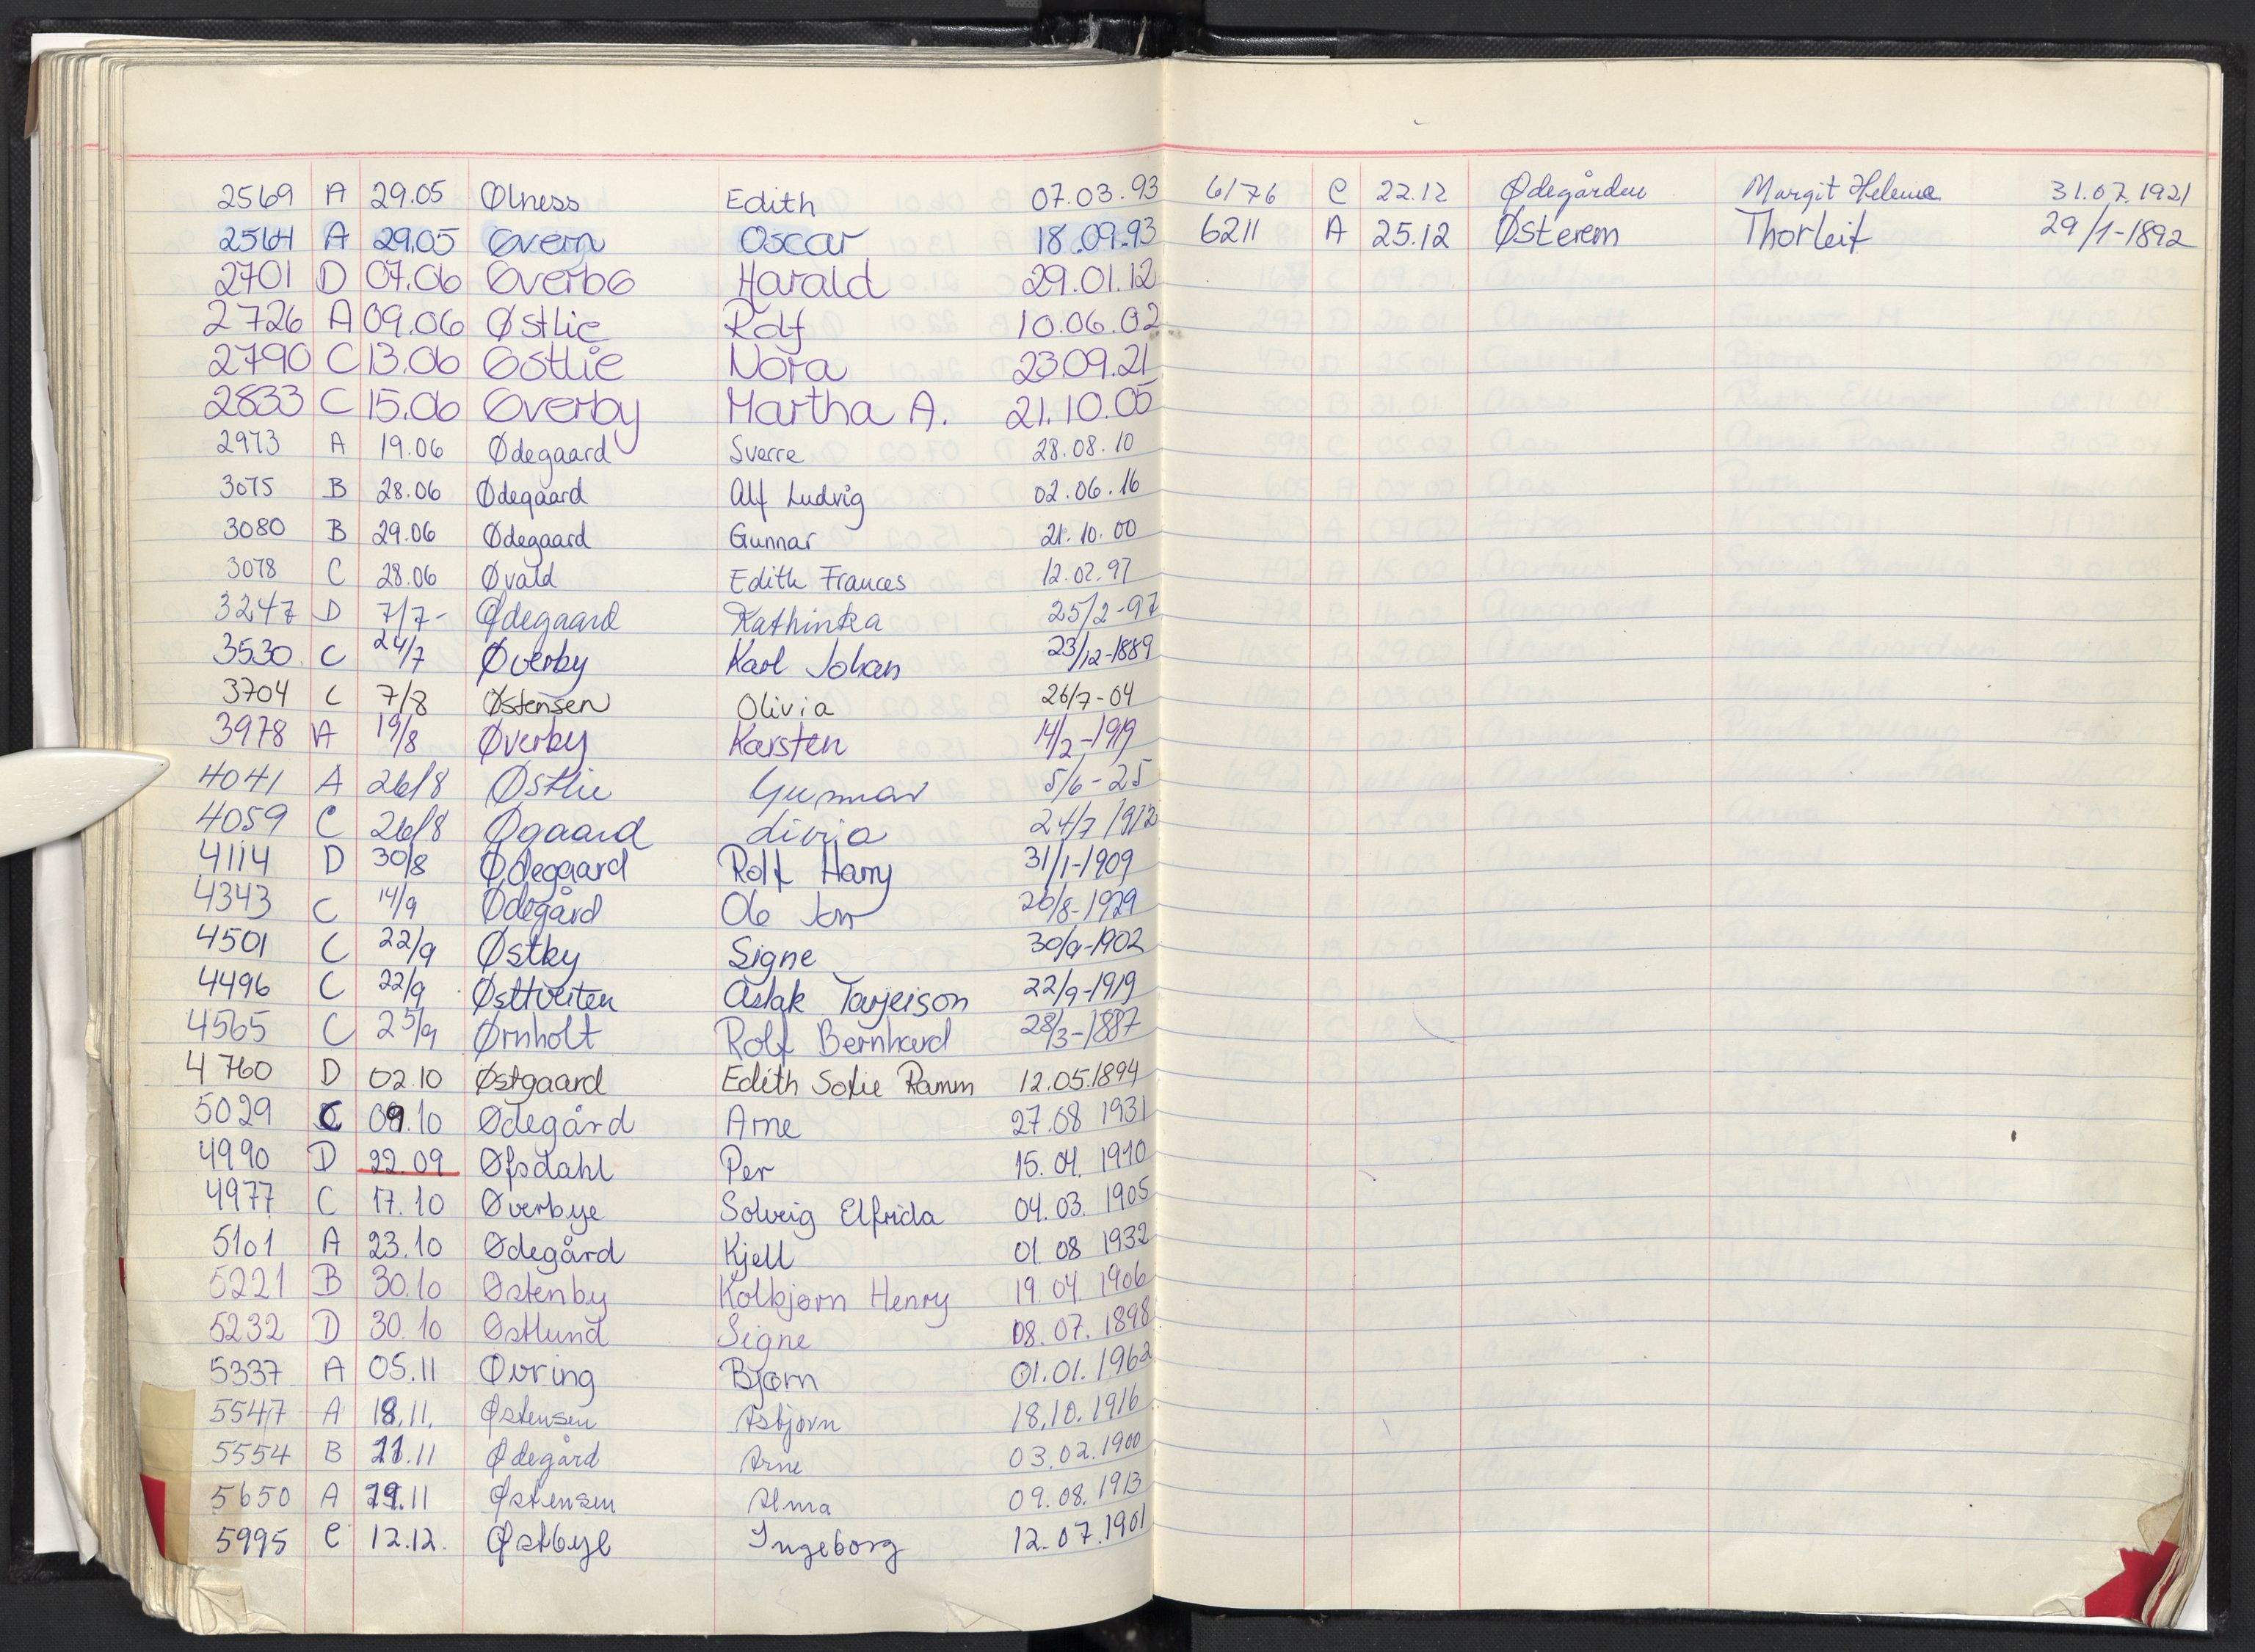 2569 A 29.05 Ølness Edith 07.03.93
2564 A 29.05 Øvern Oscar 18.09.93
2701 D 07.06 Øverbø Harald 29.01.12
2726 A 09.06 Østlie Rolf 10.06.02
2790 C 13.06 Østlie Nora 23.09.21
2833 C 15.06 Øverby Martha A. 21.10.05
2973 A 19.06 Ødegaard Sverre 28.08.10
3075 B 28.06 Ødegaard Alf Ludvig 02.06.16
3080 B 29.06 Ødegaard Gunnar 21.10.00
3078 C 28.06 Øvald Edith Frances 12.02.97
3247 D 7/7- Ødegaard Kathinka 25/2-97
3530 C 24/7 Øverby Karl Johan 23/12-1889
3704 C 7/8 Østensen Olivia 26/7-04
3978 A 19/8 Øverby Karsten 14/2-1919
4041 A 26/8 Østlie Gunnar 5/6-25
4059 C 26/8 Øgaard Livia 24/7 1912
4114 D 30/8 Ødegaard Rolf Harry 31/1-1909
4343 C 14/9 Ødegård Ole Jon 26/8-1929
4501 C 22/9 Østby Signe 30/9-1902
4496 C 22/9 Østtveiten Aslak Tarjeison 22/9-1919
4565 C 25/9 Ørnholt Rolf Bernhard 28/3-1887
4760 D 02.10 Østgaard Edith Sofie Ramm 12.05.1894
5029 C 09.10 Ødegård Arne 27.08 1931
4990 D 22.09 Øfsdahl Per 15.04. 1910
4977 C 17.10 Øverbye Solveig Elfrida 04.03. 1905
5101 A 23.10 Ødegård Kjell 01.08 1932
5221 B 30.10 Østenby Kolbjørn Henry 19.04. 1906
5232 D 30.10 Østlund Signe 08.07. 1898
5337 A 05.11 Øvring Bjørn 01.01.1962
5547 A 18.11. Østensen Asbjørn 18.10.1916
5554 B 21.11 Ødegård Arne 03.02.1900
5650 A 29.11 Østensen Alma 09.08.1913
5995 C 12.12. Østbye Ingeborg 12.07.1901
6176 C 22.12 Ødegården Margit Helene 31.07.1921
6211 A 25.12 Østerem Thorleif 29/1-1892